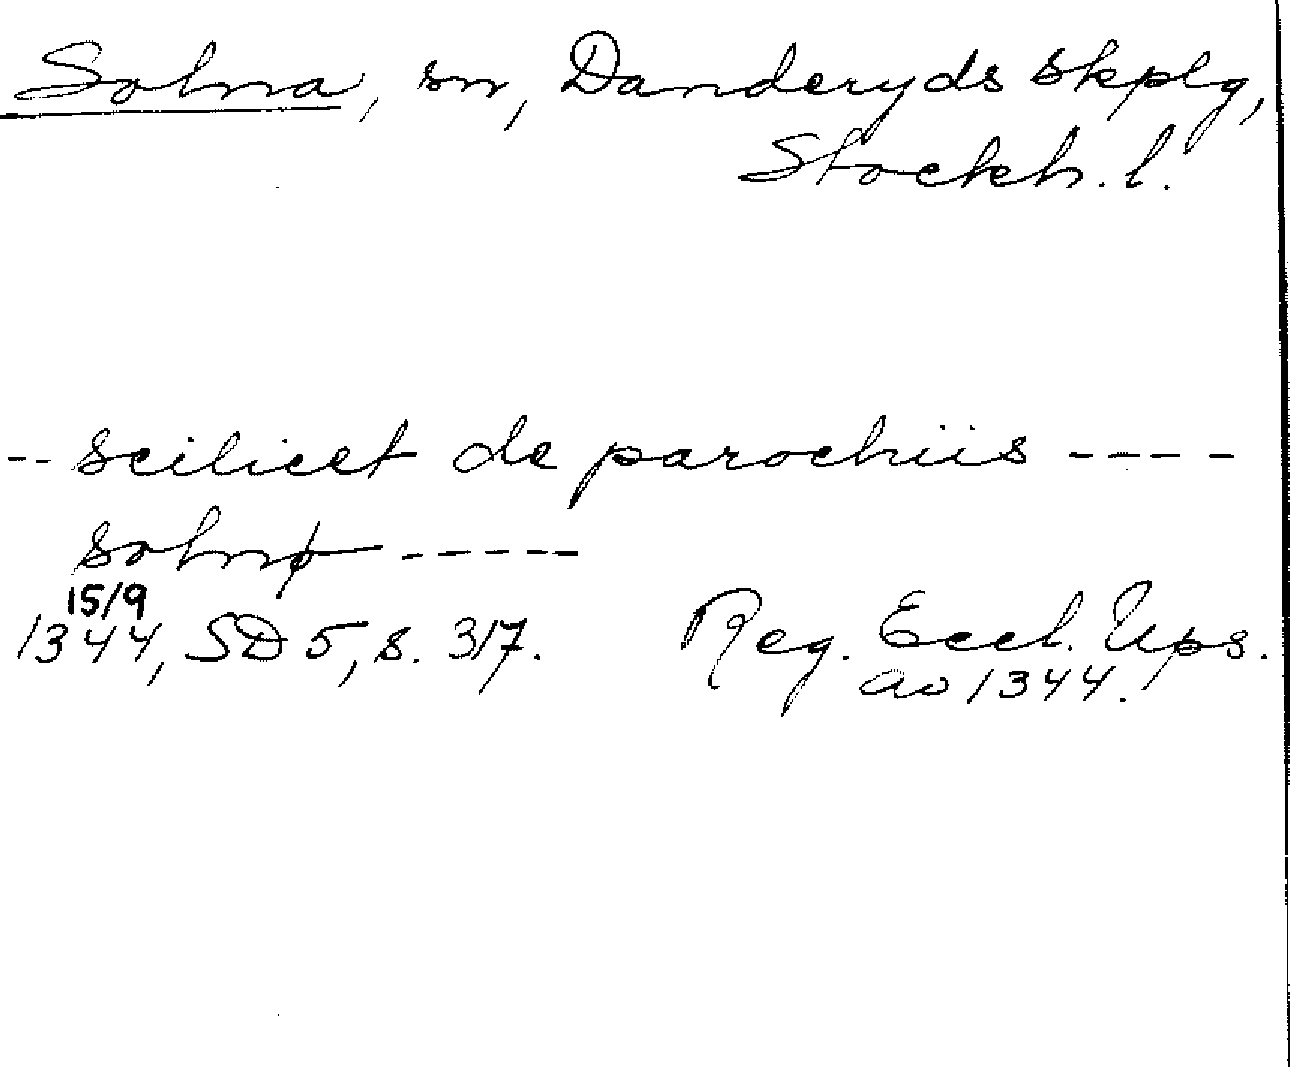 Solna, sn, Danderyds skplg,
Stockh. l.
-- scilicet de parochiis ----
solnø -----
15/9
1344, SD 5, s. 317. Reg. Eccl. Ups.
ao 1344.